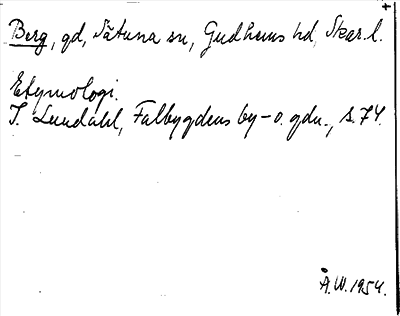 Berg, gd, Såtuna sn, Gudhems hd, Skar. l.
Etymologi.
I. Lundahl, Falbygdens by- o. gdn., s. 74.
Å.W. 1954.